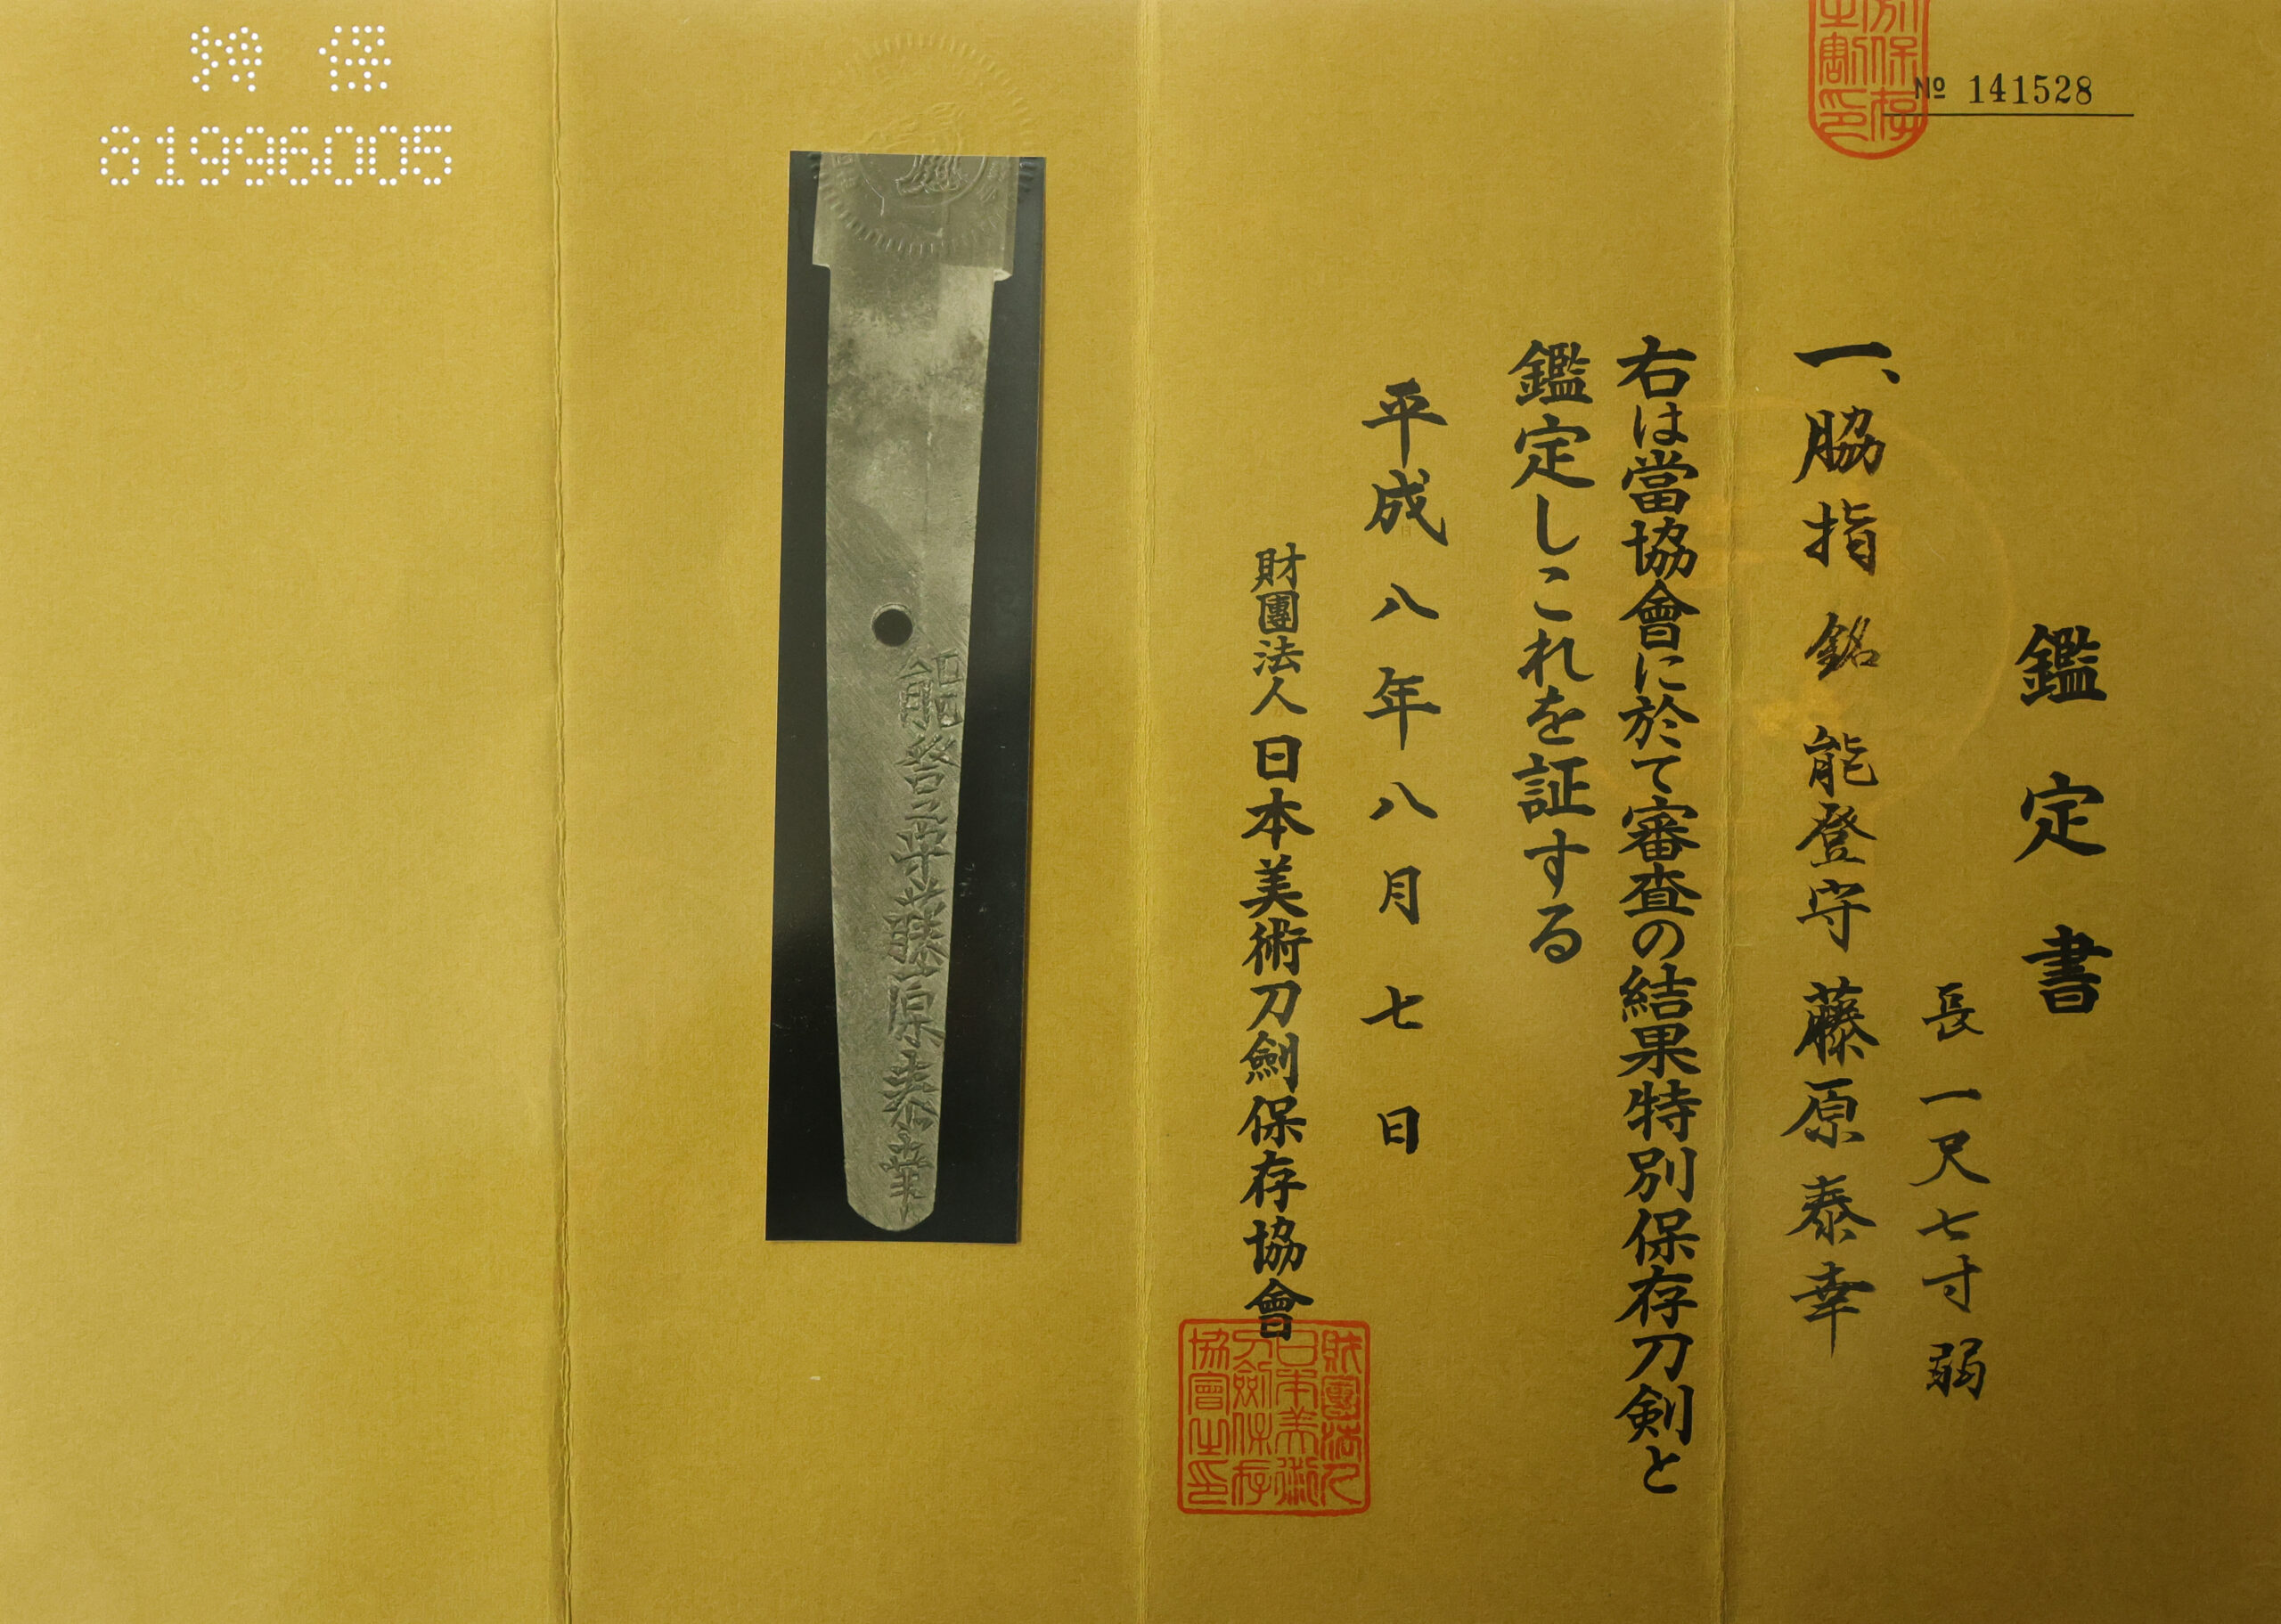 № 141528
鑑定書
長一尺七寸弱
一、脇指 銘 能登守藤原泰幸
右は當協會に於て審査の結果特別保存刀剣と
鑑定しこれを証する
平成八年八月七日
財團法人 日本美術刀劍保存協會
財團法人
日本美術
刀劍保存
協會之印
能登守藤原泰幸
特保
81996005